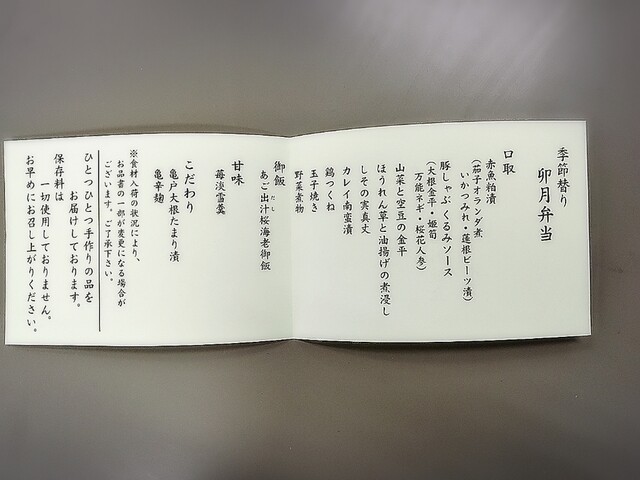 季節替り
卯月弁当
口取
赤魚粕漬
(茄子オランダ煮
いかつみれ・蓮根ビーツ漬)
豚しゃぶくるみソース
(大根金平・姫筍
万能ネギ・桜花人参)
山菜と空豆の金平
ほうれん草と油揚げの煮浸し
しその実真丈
カレイ南蛮漬
鶏つくね
玉子焼き
野菜煮物
御飯
あご出汁桜海老御飯
だし
甘味
苺淡雪羹
こだわり
亀戸大根たまり漬
亀辛麹
※食材入荷の状況により、
お品書の一部が変更になる場合が
ございます。ご了承下さい。
ひとつひとつ手作りの品を
お届けしております。
保存料は
一切使用しておりません。
お早めにお召し上がりください。